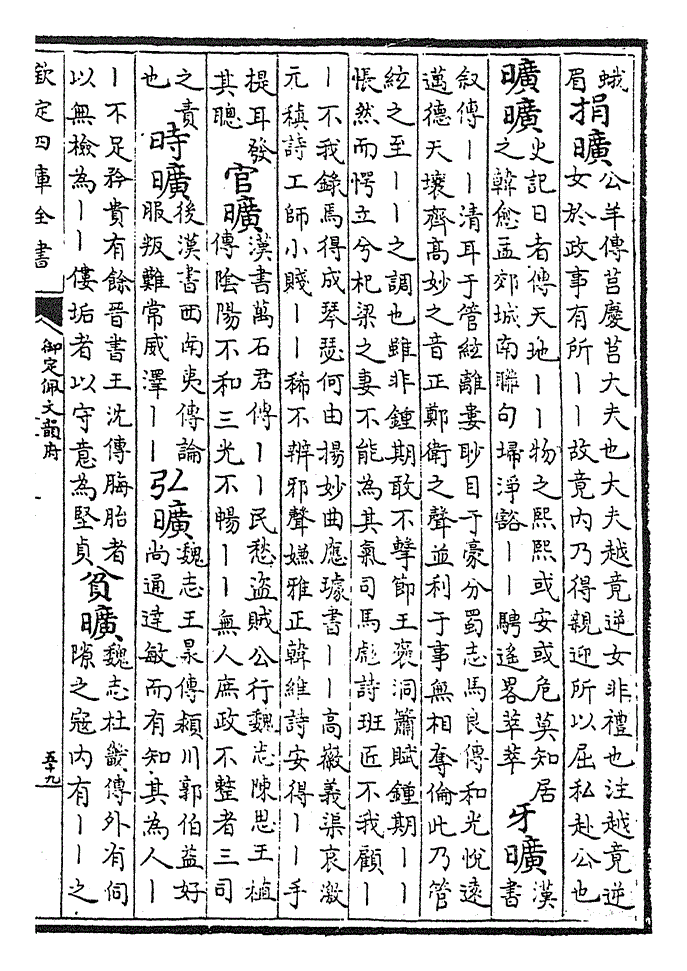 蛾
眉
捐曠
公羊傳莒慶莒大夫也大夫越竟逆女非禮也注越竟逆
女於政事有所丨丨故竟内乃得親迎所以屈私赴公也
曠曠
史記日者傳天地丨丨物之熙熙或安或危莫知居
之韓愈孟郊城南聯句掃淨豁丨丨騁遙畧萃萃
牙曠
漢
書
叙傳丨丨清耳于管絃離婁眇目于豪分蜀志馬良傳和光悅遠
邁德天壤齊高妙之音正鄭衛之聲並利于事無相奪倫此乃管
絃之至丨丨之調也雖非鍾期敢不擊節王褒洞簫賦鍾期丨丨
悵然而愕立兮杞梁之妻不能為其氣司馬彪詩班匠不我顧丨
丨不我錄焉得成琴瑟何由揚妙曲應璩書丨丨高徽義渠哀激
元稹詩工師小賤丨丨稀不辨邪聲嫌雅正韓維詩安得丨丨手
提耳發
其聰
官曠
漢書萬石君傳丨丨民愁盜賊公行魏志陳思王植
傳陰陽不和三光不暢丨丨無人庶政不整者三司
之責
也
時曠
後漢書西南夷傳論
服叛難常威澤丨丨
弘曠
魏志王昶傳潁川郭伯益好
尚通達敏而有知其為人丨
丨不足矜貴有餘晉書王沈傳脢胎者
以無檢為丨丨僂垢者以守意為堅貞
貧曠
魏志杜畿傳外有伺
隙之寇内有丨丨之
欽定四庫全書
御定佩文韻府
五十九